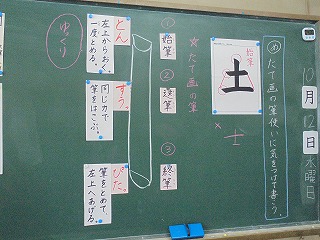 10月12日水曜日
め たて画の筆使いに気をつけて書こう。
始筆
土
×土
☆たて画の筆
①始筆
②送筆
③終筆
とん。
左上からおく
一度とめる。
すう。
同じ力で
筆をはこぶ。
ぴた。
筆をとめて、
左上へあげる。